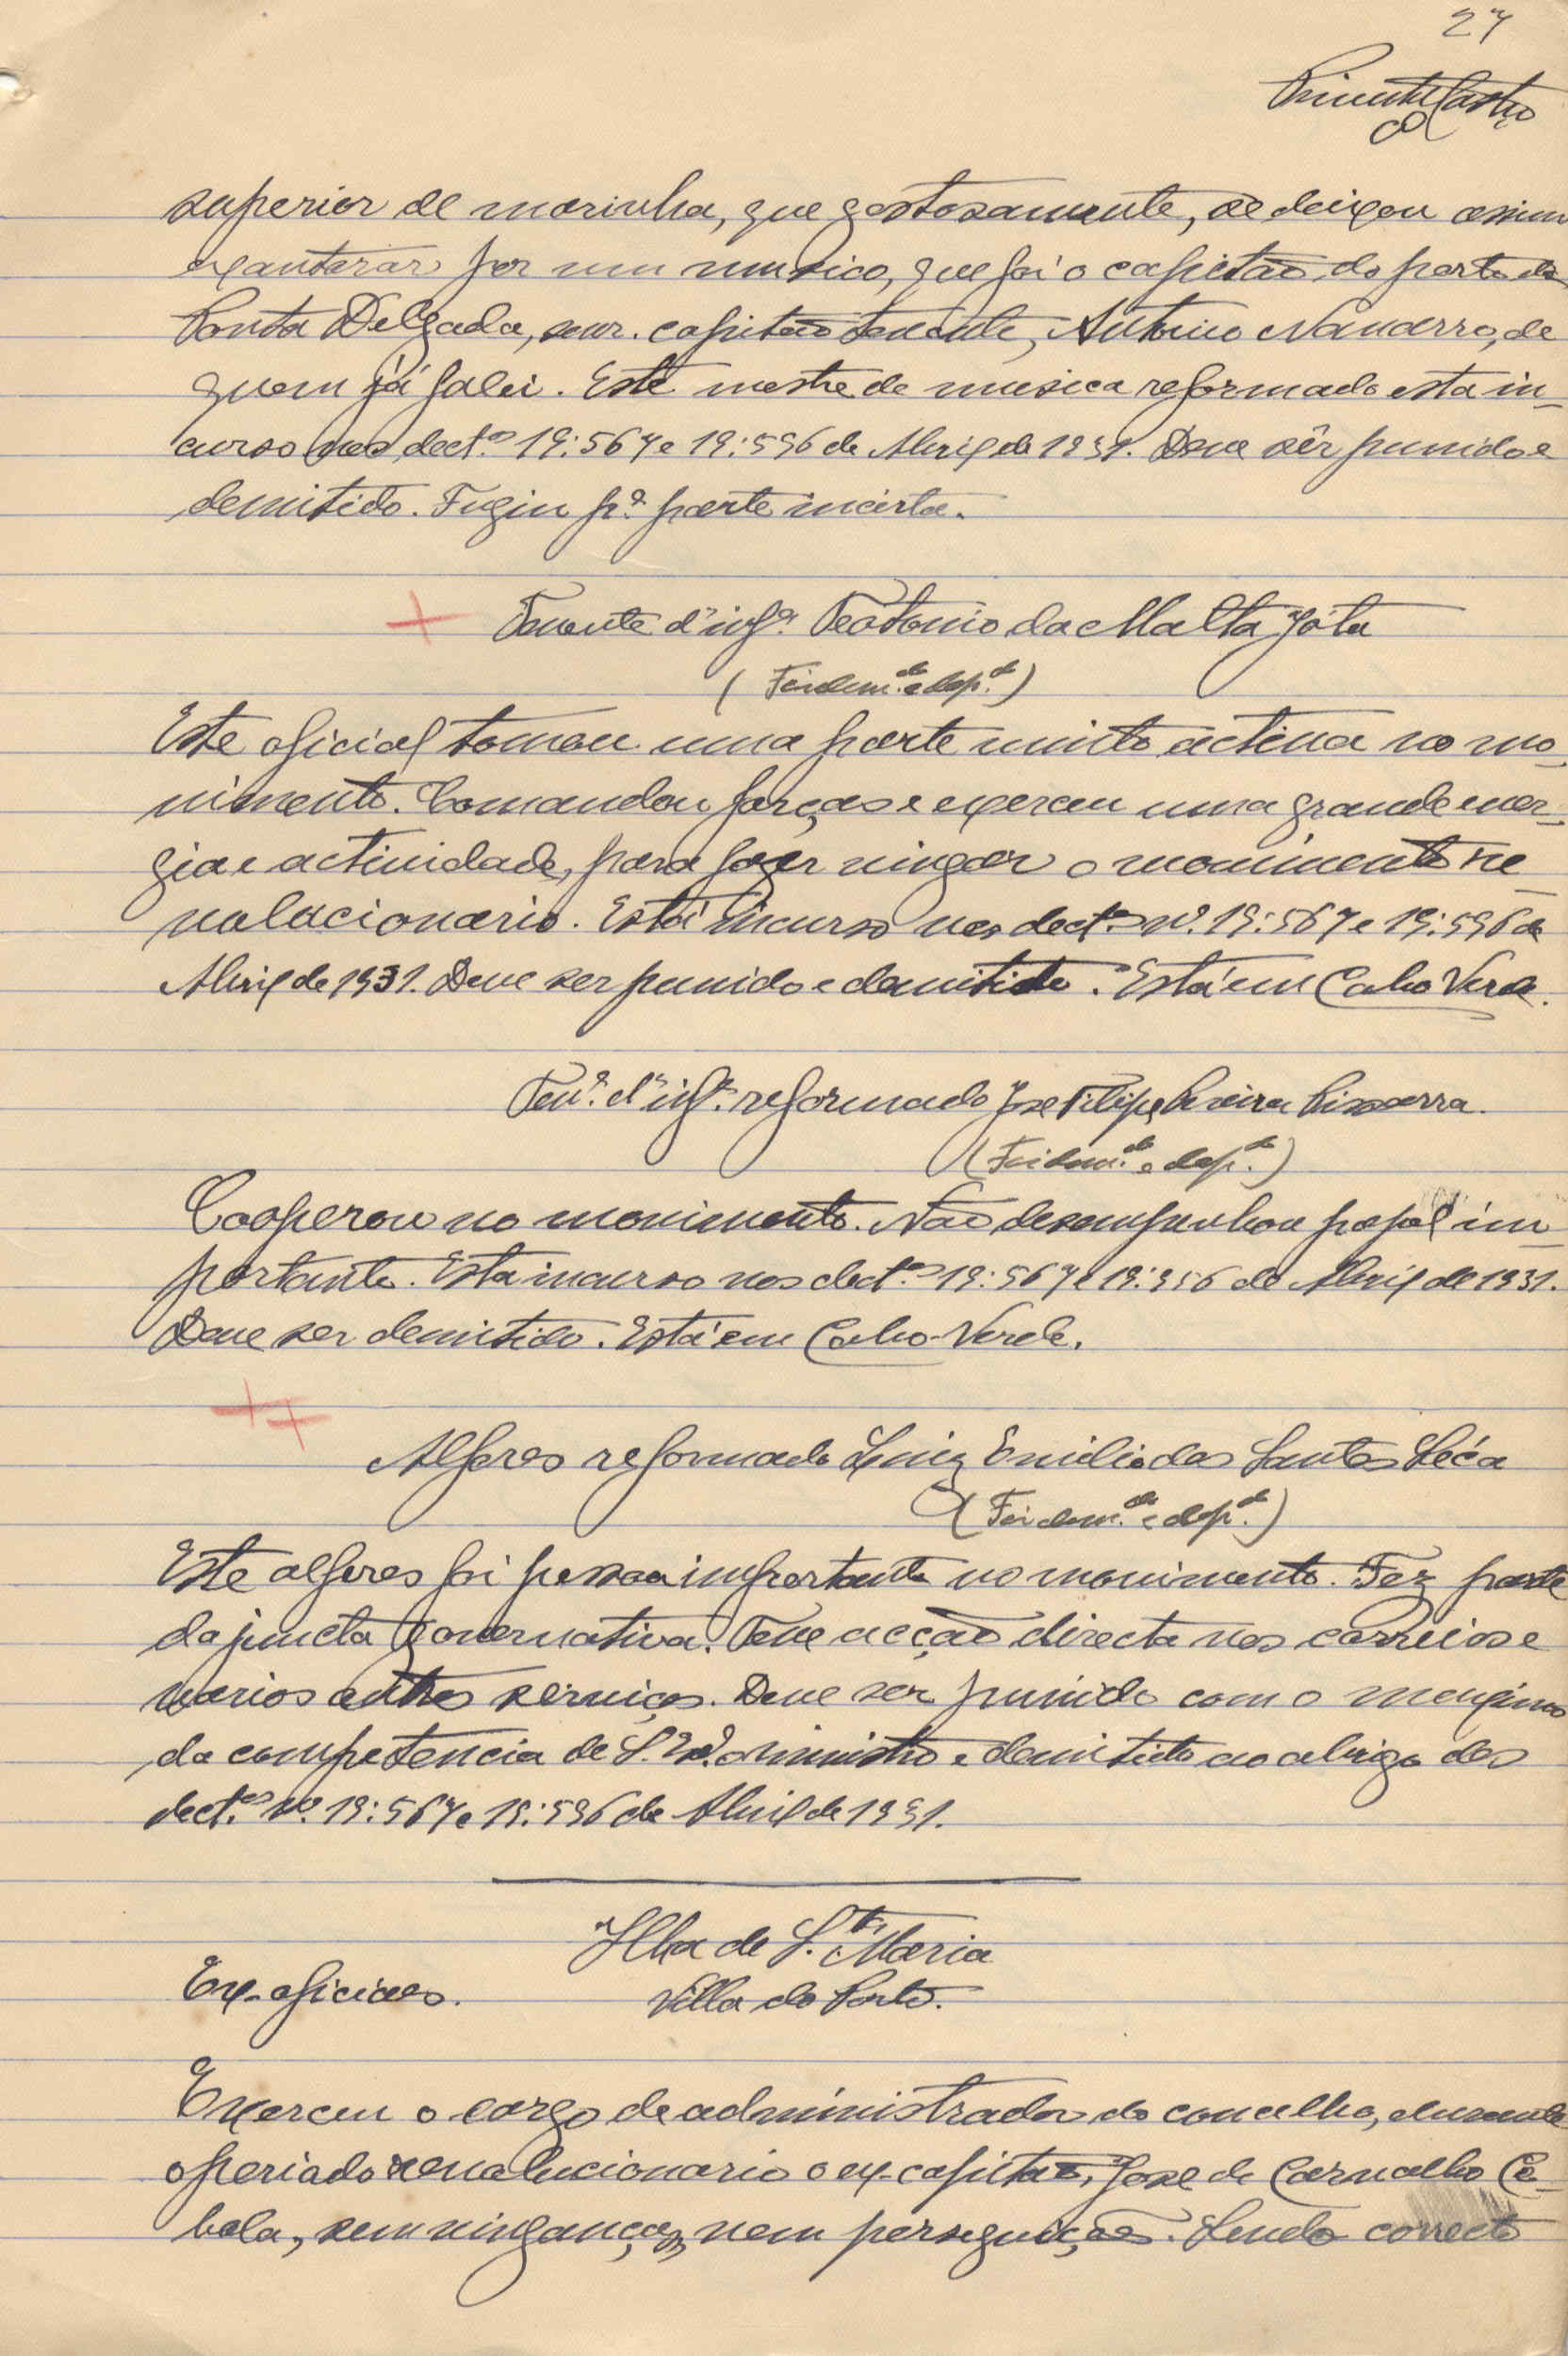 27
Vicente Castro
superior de marinha, que gostosamente, se deixou assim
exautorar por um musico, que foi o capitão do porto de
Ponta Delgada, snr. capitão tenente, Antonio Navarro, de
quem já falei. Este mestre de musica reformado esta in-
curso nos dect.os 19:567 e 19:596 de Abril de 1931. Deve sêr punido e
demitido. Fugiu p.a parte incerta.
Tenente d'inf.a Teotonio da Malta Jóta
(Foi dem.do e dep.do)
Este oficial tomou uma parte muito activa no mo-
vimento. Comandou forças e exerceu uma grande ener-
gia e actividade, para fazer vingar o movimento re-
volucionario. Está incurso nos dect.os nº. 19:567 e 19:596 de
Abril de 1931. Deve ser punido e demitido. Está em Cabo Verde.
Ten.e d'inf.a reformado José Filipe Pissarra.
(Foi dem.do e dep.do)
Cooperou no movimento. Não desempenhou papel im-
portante. Esta incurso nos dect.os 19:567 e 19:956 de Abril de 1931.
Deve ser demitido. Está em Cabo-Verde.
Alferes reformado Luiz Emilio dos Santos Léça
(Foi dem.do e dep.do)
Este alferes foi pessoa importante no movimento. Fez parte
da juncta governativa. Teve acção directa nos correios e
varios outros serviços. Deve ser punido com o maximo
da competencia de S. Ex.a o ministro e demitido ao abrigo dos
dect.os nº. 19:567 e 19:596 de Abril de 1931.
Ilha de S.ta Maria
Ex-oficiaes.
Villa do Porto.
Exerceu o cargo de administrador do concelho, durante
o periodo revolucionario o ex-capitão, José de Carvalho Ce-
bola, sem vinganças, nem perseguições. Sendo correcto